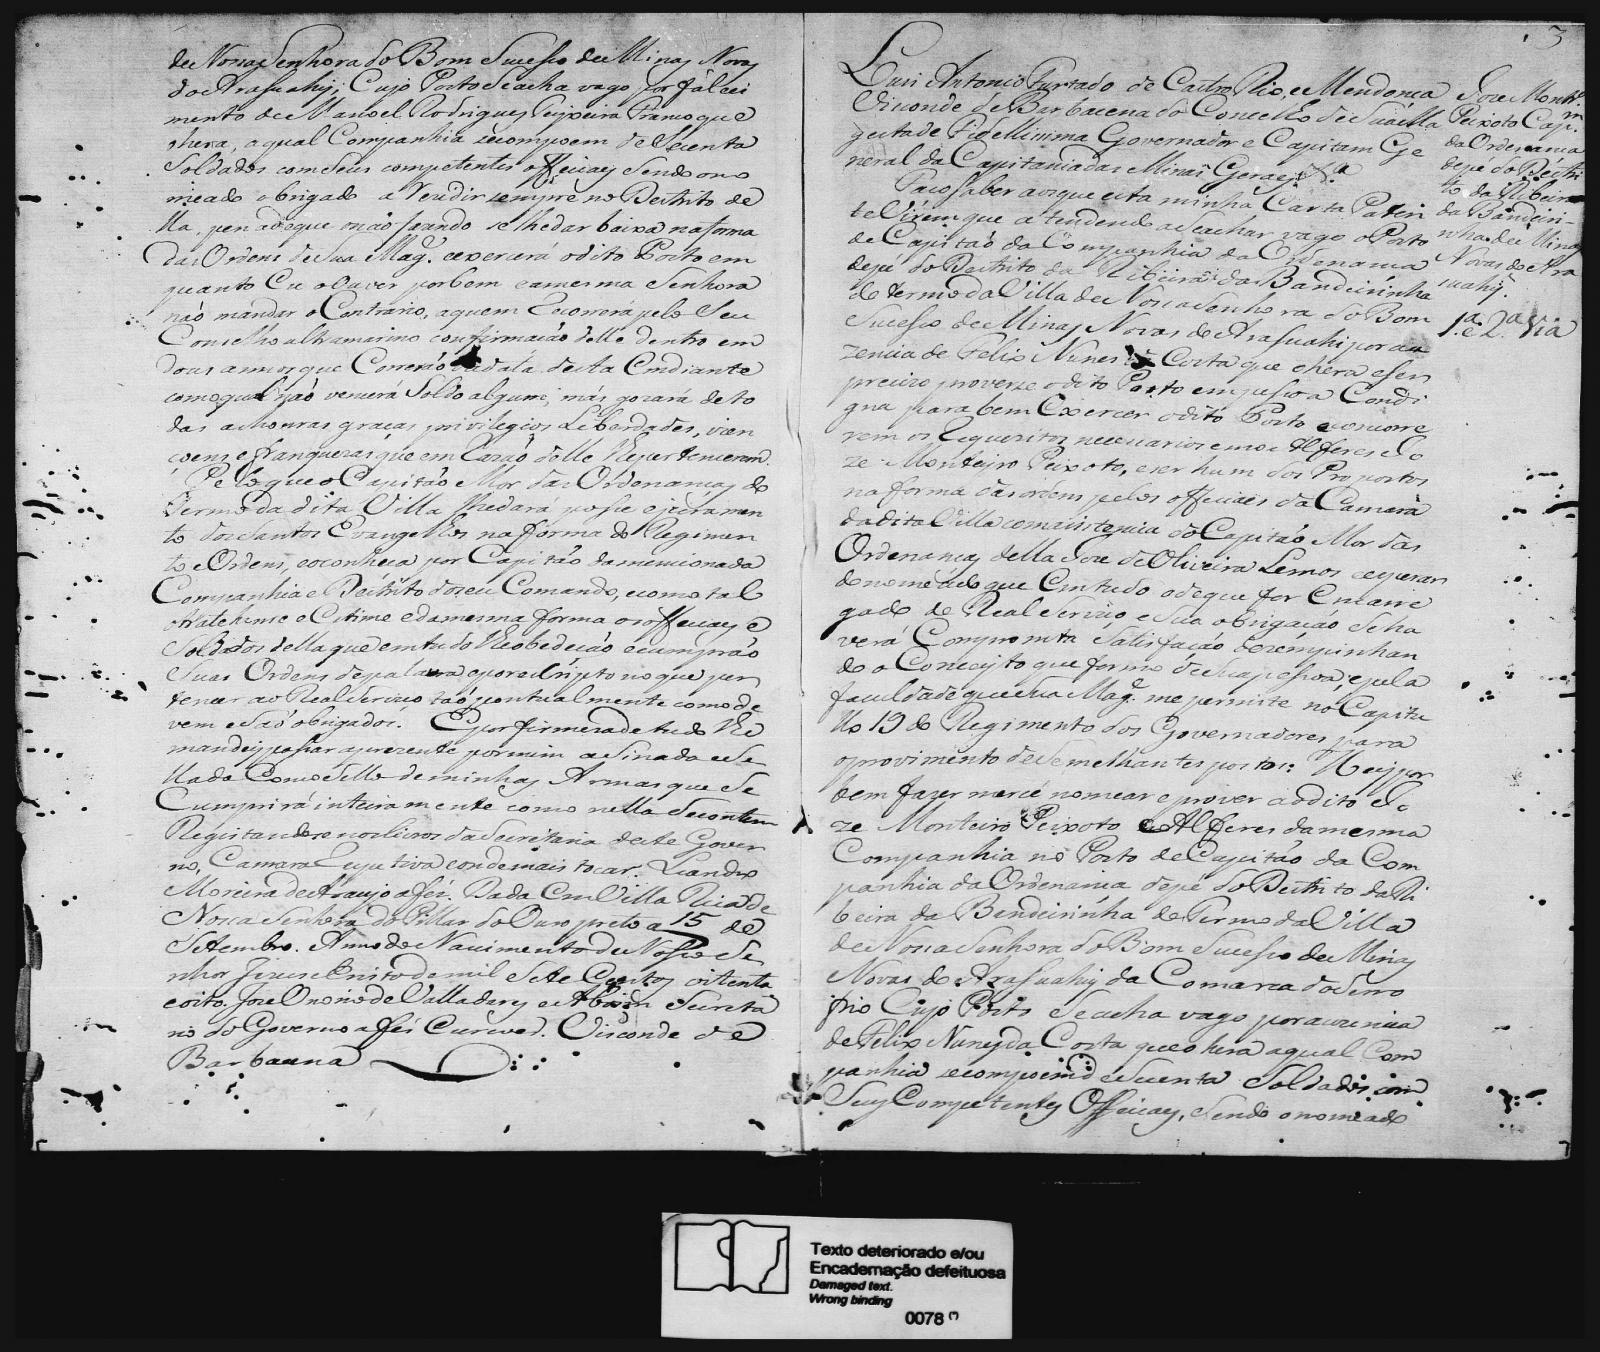 de Nossa Senhora do Bom Sucesso de Minas Novas
do Arasuahy, Cujo Posto Seacha vago por faleci
mento de Manoel Rodrigues Teixeira Franco que
ohera, a qual Companhia secompoem de Secenta
Soldados comseus competentes officiaes Sendo ono
meado obrigado a Rezidir sempre no Destrito de
lla, pena deque onão fazendo selhedar baixa naforma
das Ordens deSua Mag.e eexercerá odito Posto em
quanto Eu oOuver porbem eamesma Senhora
não mandar oContrario, aquem Recorrerá pelo Seu
Conselho ultramarino confirmaçaó delle dentro em
dous annos que Correráo dadata desta Emdiante
comoqual não vencerá Soldo algum, más gozará deto
das as honras graças privilegios Liberdades, izen
çoens e franquezas que em Razaó delle lhepertencerem.
Pelo que o Capitão Mor das Ordenanças do
Termo da dita Villa lhedará posse ejuramen
to dos Santos Evangelhos na forma do Regimen
to e Ordens, eoconheça por Capitaó da mencionada
Companhia e Destrito doseu Comando, ecomo tal
otratehonre e Estime edamesma forma os officiaes e
Soldados della que emtudo lhe obedeçaó ecumpraó
Suas Ordens depalavra eporescripto no que per
tencer ao Real serviço taó pontualmente como de
vem eSaó obrigados. E por firmeza de tudo lhe
mandey passar aprezente por mim asinada eSe
llada Com oSello deminhas Armas que Se
Cumprirá inteiramente como nella Secontem
Registandose nos livros da Secretaria deste Gover
no, Camara Respetiva eonde mais tocar. Leandro
Moreira de Araujo afez. Dada Em Villa Rica de
Nossa Senhora do Pillar do Ouro preto a 15 de
Setembro. Anno do Nacimento de Nosso Se
nhor Jezus Christo de mil Sete Centos oitenta
eoito. Joze Onorio de Valladares e Aboim Secreta
rio do Governo a fez Escrever. Visconde de
Barbacena
3
Luis Antonio Furtado de Castro Rio, e Mendonca
Visconde de Barbacena do Concelho de Sua Ma
gestade Fidellissima Governador e Capitam Ge
neral da Capitania das Minas Geraes &.a
Faço saber aosque esta minha Carta Paten
te Virem que atendendo aSeachar vago o Posto
de Capitaó da Companhia da Ordenança
depé do Destrito da Ribeira da Bandeirinha
do termo da Villa de Nossa Senhora do Bom
Sucesso de Minas Novas do Arasuahi por au
zencia de Felix Nunes da Costa que ohera eser
precizo proverse odito Posto empessoa Condi
gna para bem Exercer odito Posto econcorre
rem os Requezitos necessarios em o Alferes Jo
ze Monteiro Peixoto, eser hum dos Propostos
na forma das ordens pelos officiaes da Camara
dadita Villa comasistencia do Capitaó Mor das
Ordenanças della Joze de Oliveira Lemos eesperar
do nomeado que Emtudo odeque for Encarre
gado do Real Serviço e Sua obrigaçaó Seha
verá Comprompta Satisfação dezempenhan
do o Conceyto que formo desuapessoa, epela
faculdade queSua Mag.e me permite no Capitu
lo 19 do Regimento dos Governadores para
oprovimento deSemelhantes postos: Hey por
bem fazer mercê nomear e prover aodito Jo
ze Monteiro Peixoto Alferes da mesma
Companhia no Posto de Capitão da Com
panhia da Ordenança depé do Destrito da Ri
beira da Bandeirinha do Termo da Villa
de Nossa Senhora do Bom Sucesso de Minas
Novas do Arasuahy da Comarca doSerro
frio Cujo Posto Seacha vago por auzencia
de Felix Nunes da Costa que o hera aqual Com
panhia secompoem de Secenta Soldados com
Seus Competentes Officiaes, Sendo onomeado
Joze Montr.o
Peixoto Cap.m
da Ordenança
depé do Destri
to da Ribeira
da Bandeiri-
nha de Minas
Novas do Ara
suahy.
1.a e 2.a Via
Texto deteriorado e/ou
Encadernação defeituosa
Damaged text.
Wrong binding
0078 (*)